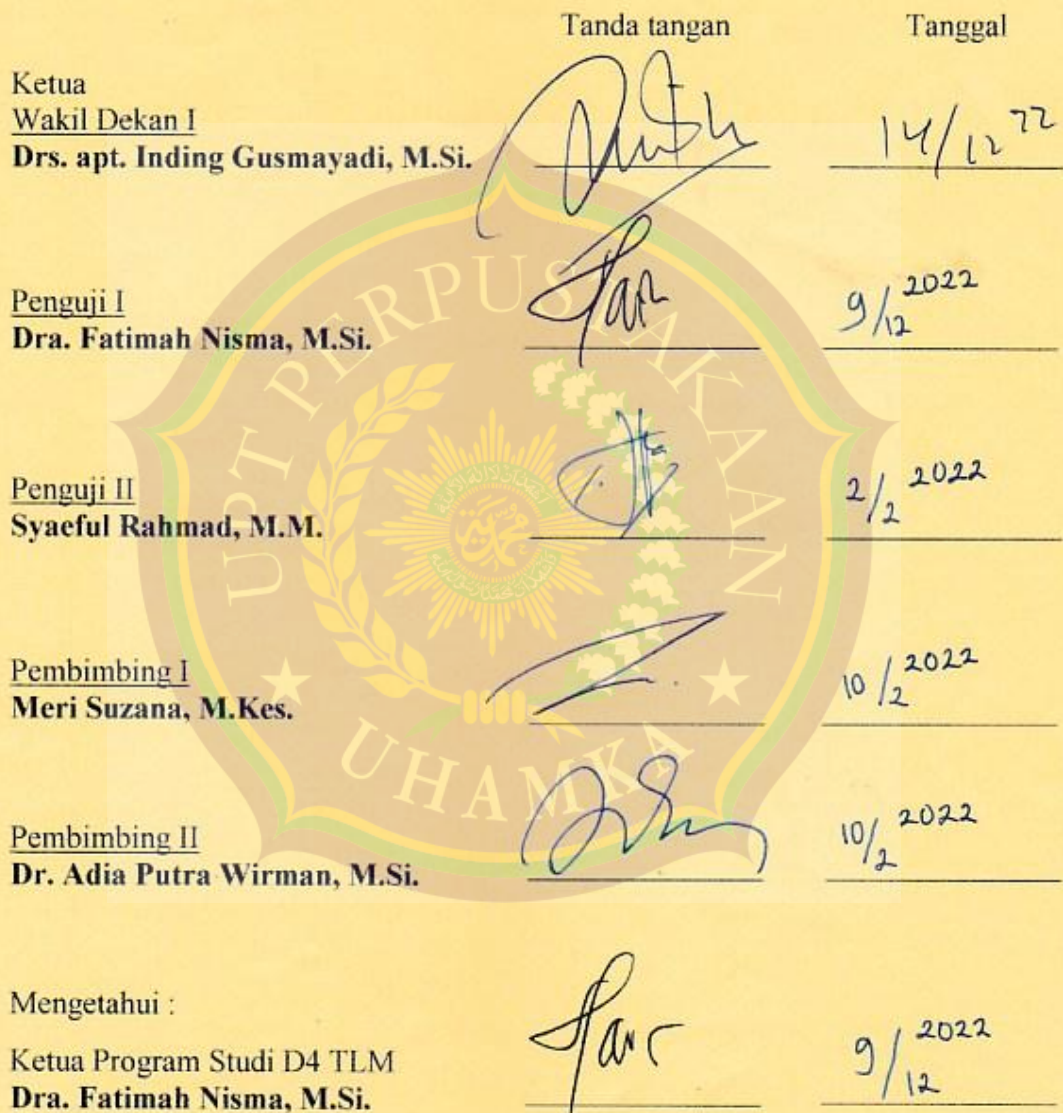 Tanda tangan Tanggal
Ketua
Wakil Dekan I
Drs. apt. Inding Gusmayadi, M.Si. 14/12 22
Penguji I
Dra. Fatimah Nisma, M.Si. 9/12 2022
Penguji II
Syaeful Rahmad, M.M. 2/2 2022
Pembimbing I
Meri Suzana, M.Kes. 10/2 2022
Pembimbing II
Dr. Adia Putra Wirman, M.Si. 10/2 2022
Mengetahui :
Ketua Program Studi D4 TLM
Dra. Fatimah Nisma, M.Si. 9/12 2022
UPT PERPUSTAKAAN
UHAMKA